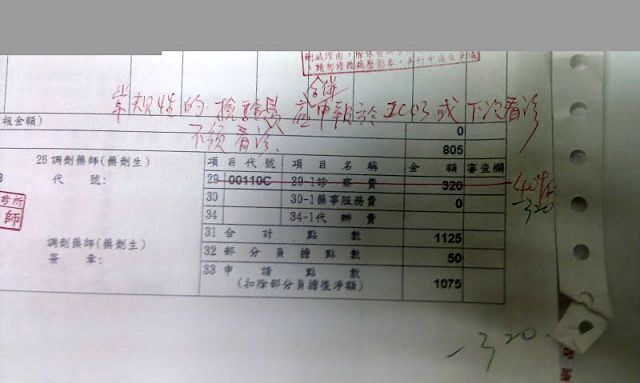 常規性的檢驗費應合併申報於IC03或下次看診
不須看診、
報金額)
0
805
26 調劑藥師(藥劑生)
代 號:
項目代號 項目名稱 金額 審查欄
29 00110C 29-1診察費 320
30 30-1藥事服務費 0
34 34-1代辦費
31 合計點數 1125
調劑藥師(藥劑生)
簽 章:
32 部分負擔點數 50
33 申請點數
(扣除部分負擔後淨額) 1075
診所
師
-320
-320